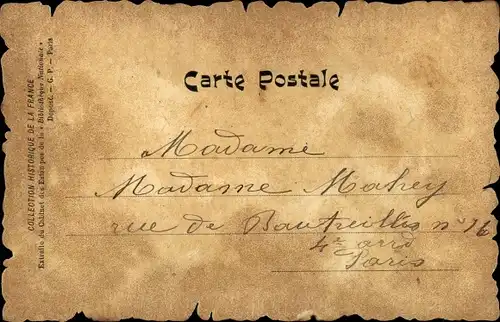 COLLECTION HISTORIQUE DE LA FRANCE
Extraite du Cabinet des Estampes de la « Bibliothèque Nationale »
Déposé. — G. P. — Paris
Carte Postale
Madame
Madame Mahey
rue de Bautreillis n° 16
4e arrd
Paris